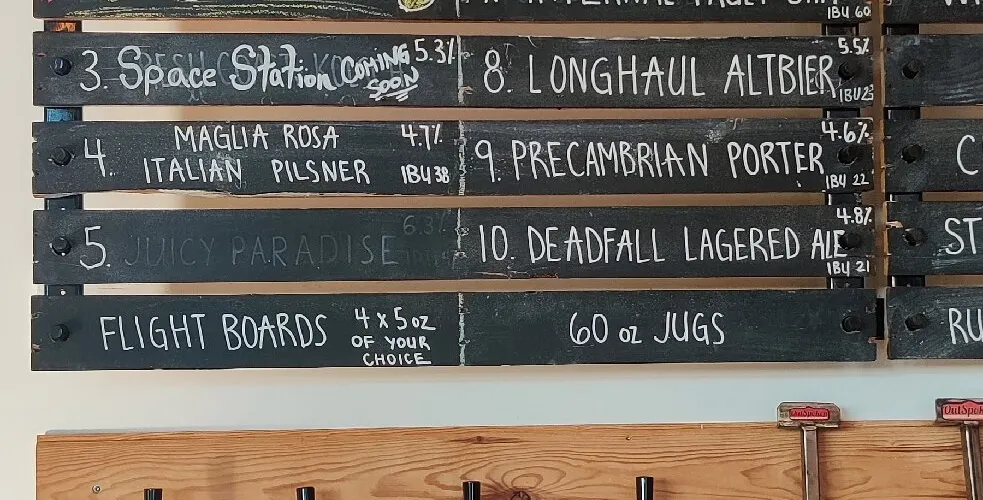 IBU 60
3. Space Station COMING SOON 5.3%
8. LONGHAUL ALTBIER 5.5%
4. MAGLIA ROSA 4.7%
ITALIAN PILSNER IBU 38
9. PRECAMBRIAN PORTER 4.6%
IBU 22
5. JUICY PARADISE 6.3%
10. DEADFALL LAGERED ALE 4.8%
IBU 21
FLIGHT BOARDS 4 x 5 oz
OF YOUR
CHOICE
60 oz JUGS
C
ST
RU
OutSpoken